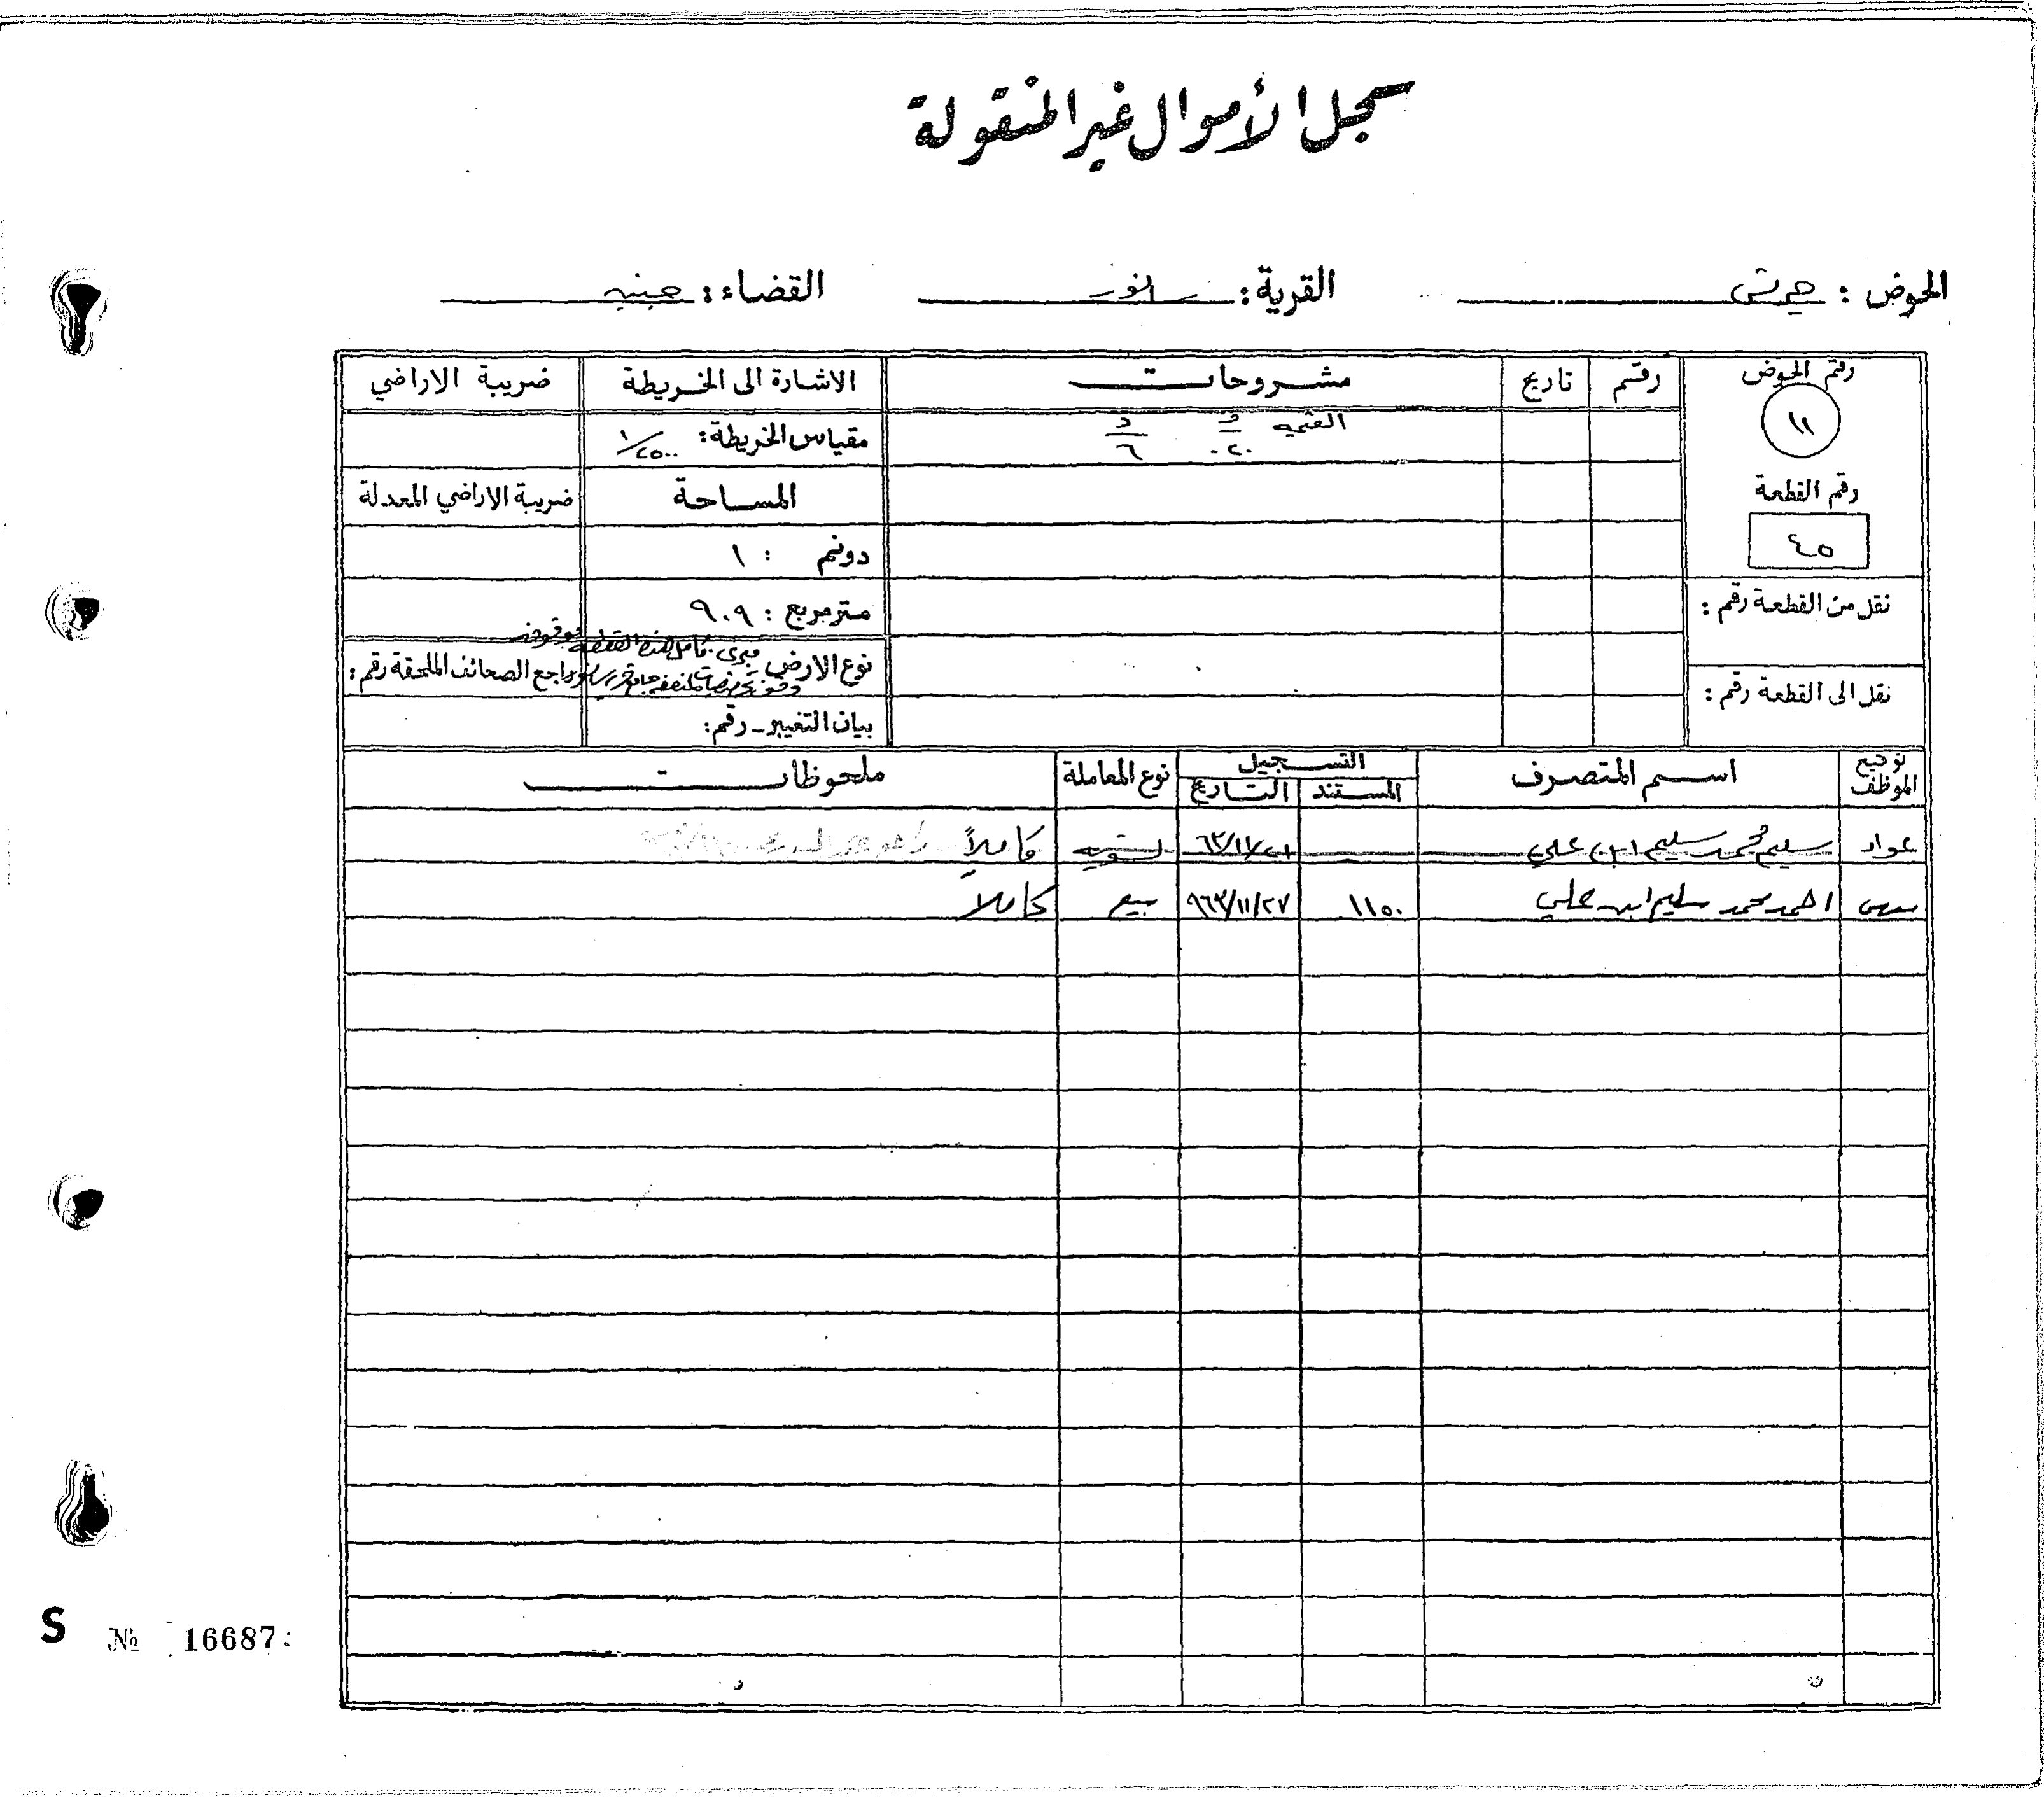 سجل الأموال غير المنقولة
الحوض : حريش القرية : سانور القضاء : جنين
رقم الحوض رقم تاريخ مشروحات الاشارة الى الخريطة ضريبة الاراضي
١١ القيمة د ٢٠ د ٦ مقياس الخريطة : ١/٢٥٠٠
رقم القطعة المساحة ضريبة الاراضي المعدلة
٤٥ دونم : ١
نقل من القطعة رقم : متر مربع : ٩٠٩
نوع الارض ميري كامل هذه القطعة موقوفة
راجع الصحائف الملحقة رقم :
نقل الى القطعة رقم :
بيان التغيير - رقم :
توقيع الموظف اسم المتصرف التسجيل المستند التاريخ نوع المعاملة ملحوظات
عواد سليم محمد سليم ابن علي ٦٣/١١/٢١ تسوية كاملاً
احمد محمد سليم ابن علي ١١٥٠ ٩٦٣/١١/٢٧ بيع كاملا
S № 16687